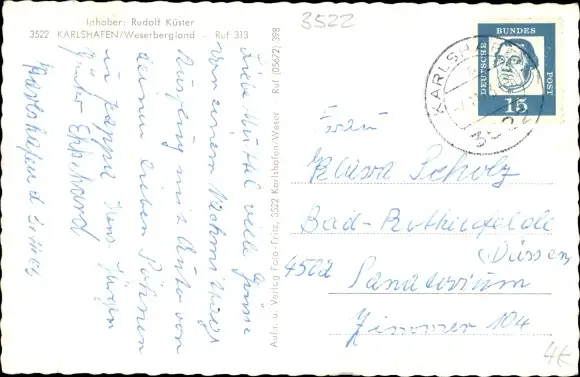 Inhaber: Rudolf Küster
3522 KARLSHAFEN/Weserbergland - Ruf 313
3522
DEUTSCHE BUNDES POST
15
KARLSH
3522
Liebe viele Grüsse
von einem Nachmittags
Ausflug mit Auto von
deinen lieben Söhnen
u. Jürgen
Günter Ekkhard
Karlshafen d.
Aufn. u. Verlag Foto-Fritz, 3522 Karlshafen-Weser Ruf (05672) 398
Frau
Klara Scholz
Bad-Rothenfelde
4502 (Düssen)
Sanatorium
Zimmer 104
4€